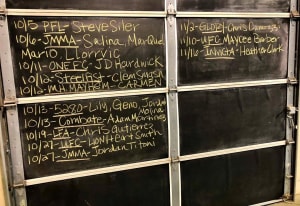 10/5 PFL- Steve Siler
10/6- JMMA- Salina MarQuel
Mario Llorrvic
10/11- ONEFC- JD Hardwick
10/12- SteelFist- Clem Smash
10/12- M.H. MAYHEM- CARMEN
10/13- Lily, Geno, Jordan
Molina
10/13- Combate- Adam Martinez
10/19- LFA- Chris Gutierrez
10/27- UFC- Lion Heart Smith
10/27- JMMA- Jordan Titoni
11/2- Chris
11/10- UFC Maycee Barber
11/16- Invicta- Heather Clark